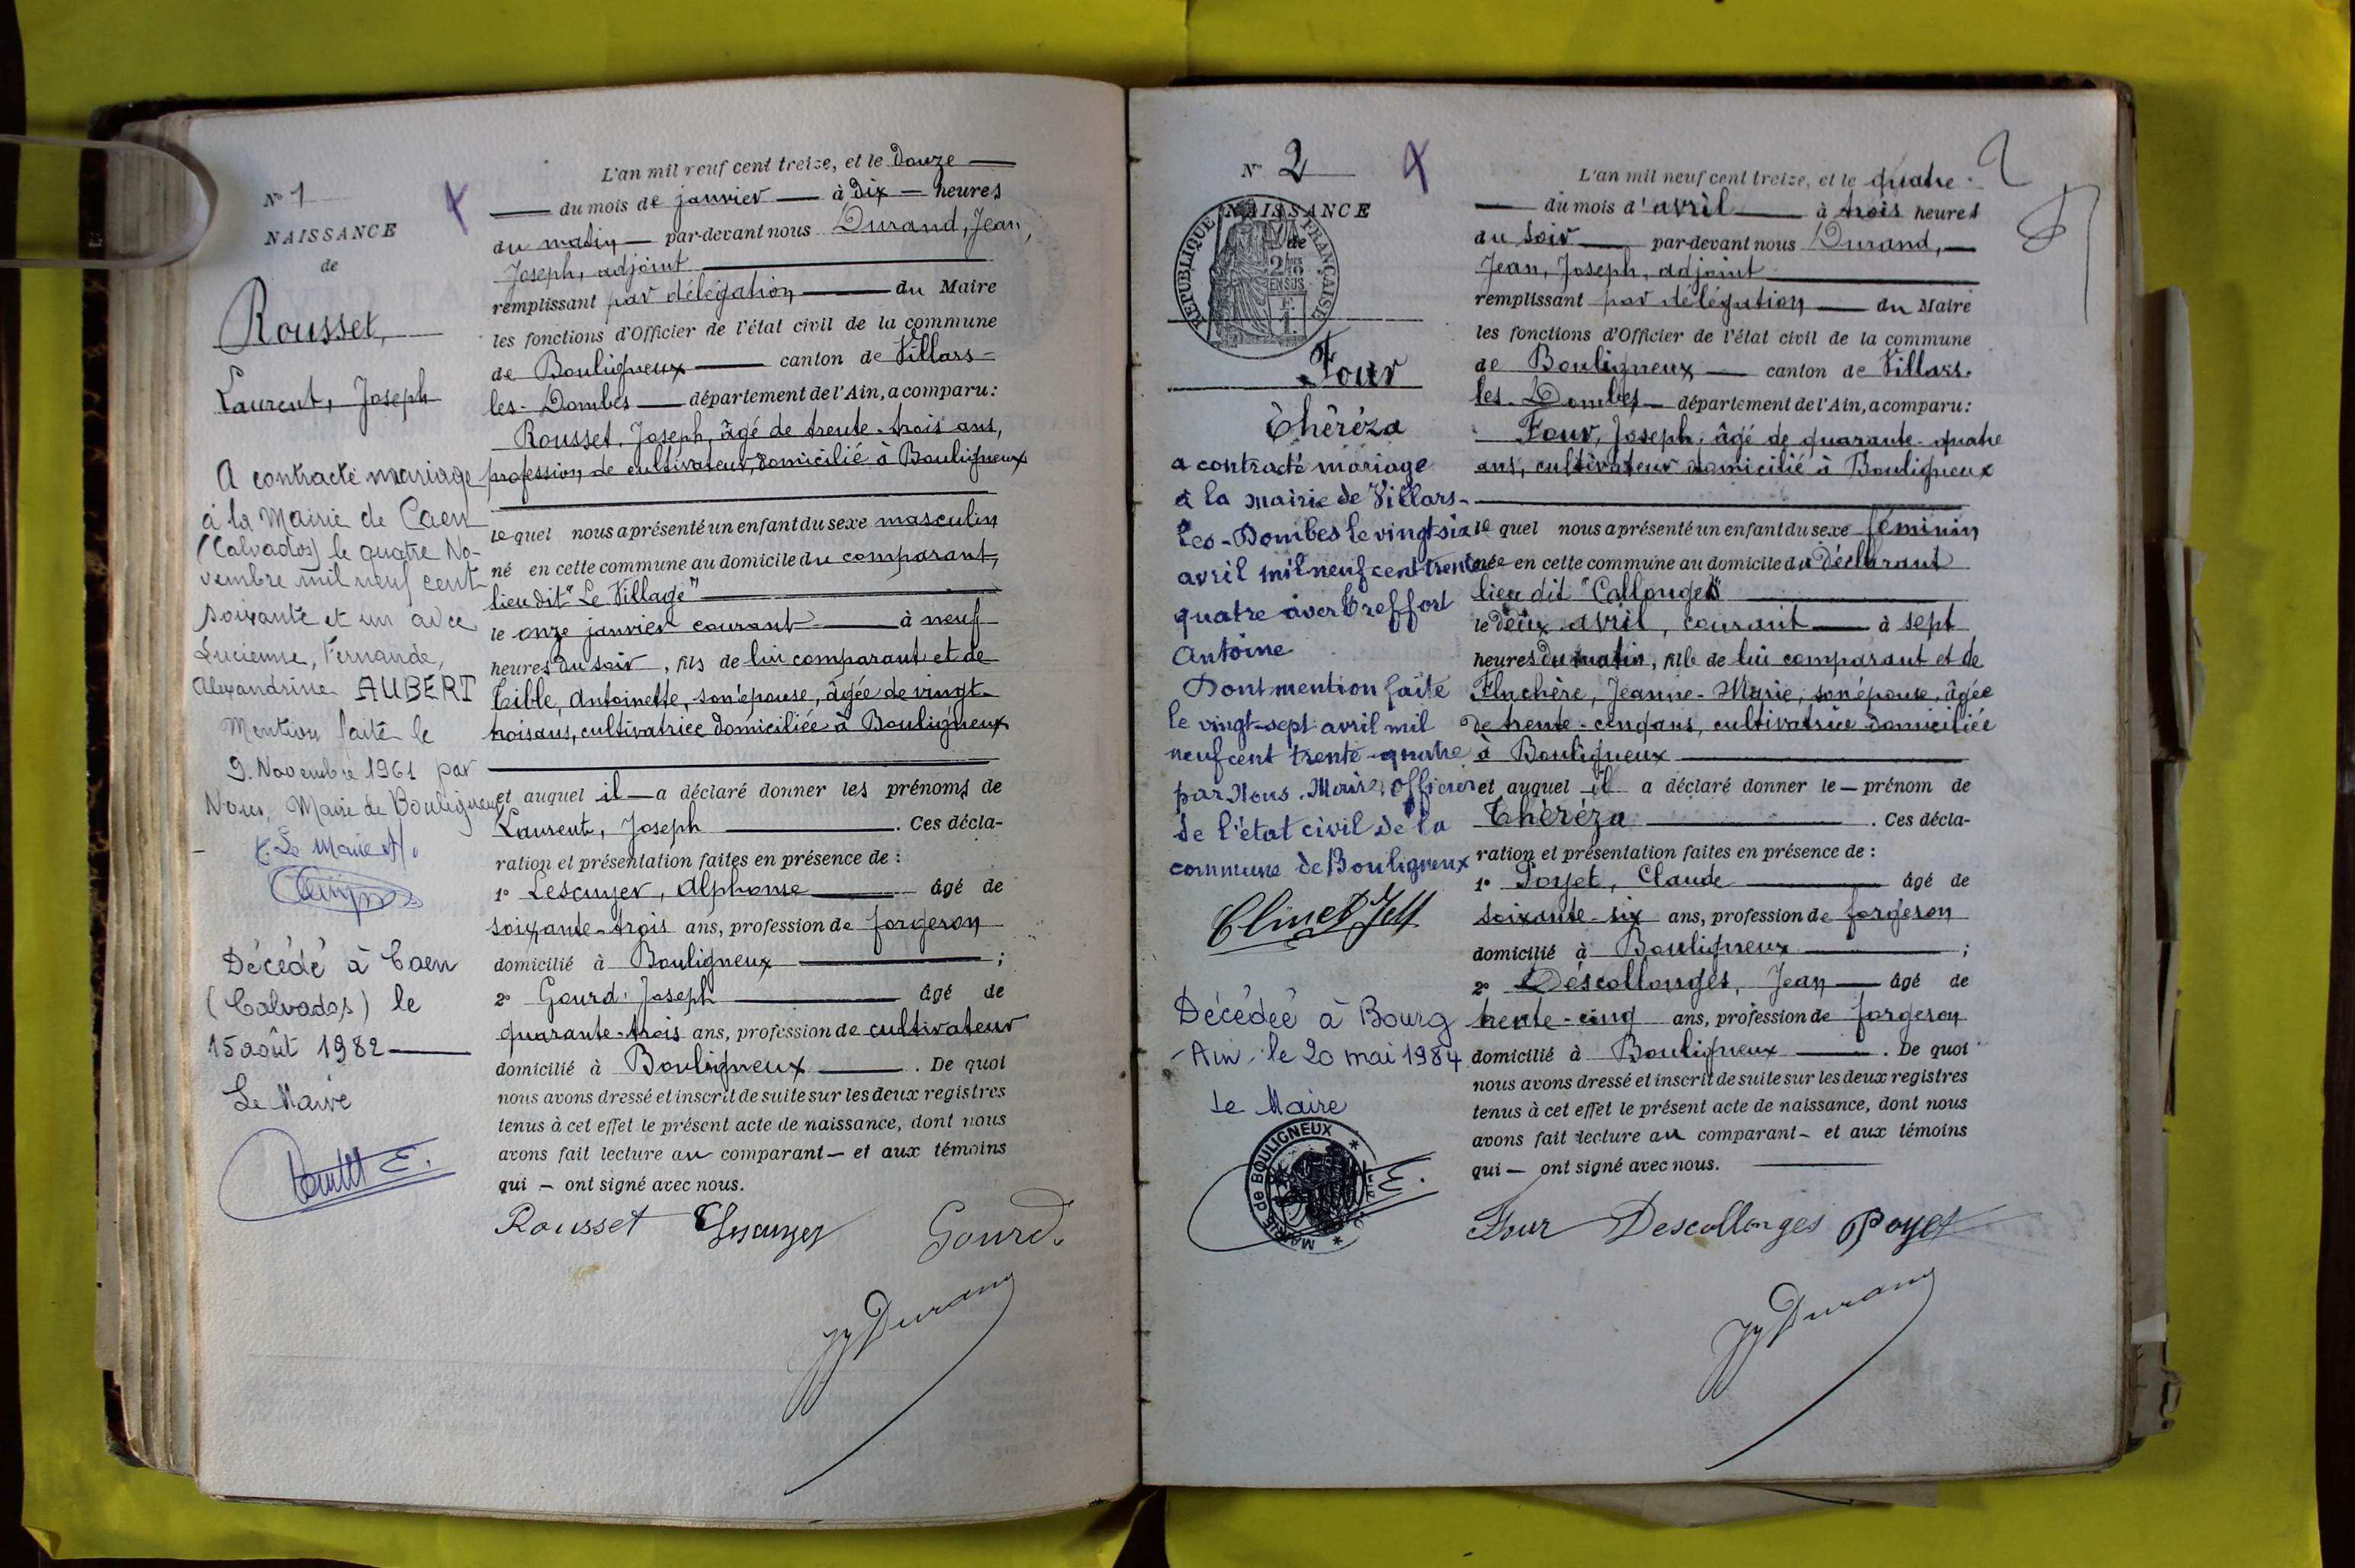 N° 1
NAISSANCE
de
Rousset,
Laurent, Joseph
A contracté mariage
à la Mairie de Caen
(Calvados) le quatre No-
vembre mil neuf cent
soixante et un avec
Lucienne, Fernande,
Alexandrine AUBERT
Mention faite le
9. Novembre 1961 par
Nous, Maire de Bouligneux
Le Maire
Décédé à Caen
(Calvados) le
15 août 1982
Le Maire
L'an mil neuf cent treize, et le douze
du mois de janvier à dix heures
du matin par-devant nous Durand, Jean,
Joseph, adjoint
remplissant par délégation du Maire
les fonctions d'Officier de l'état civil de la commune
de Bouligneux canton de Villars-
les-Dombes département de l'Ain, a comparu:
Rousset, Joseph, âgé de trente-trois ans,
profession de cultivateur, domicilié à Bouligneux
lequel nous a présenté un enfant du sexe masculin
né en cette commune au domicile du comparant,
lieu dit "Le Village"
le onze janvier courant à neuf
heures du soir, fils de lui comparant et de
Tible, Antoinette, son épouse, âgée de vingt-
trois ans, cultivatrice domiciliée à Bouligneux
et auquel il a déclaré donner les prénoms de
Laurent, Joseph. Ces décla-
ration et présentation faites en présence de :
1° Lescuyer, Alphonse âgé de
soixante-trois ans, profession de forgeron
domicilié à Bouligneux ;
2° Gourd, Joseph âgé de
quarante-trois ans, profession de cultivateur
domicilié à Bouligneux. De quoi
nous avons dressé et inscrit de suite sur les deux registres
tenus à cet effet le présent acte de naissance, dont nous
avons fait lecture au comparant — et aux témoins
qui — ont signé avec nous.
Rousset Lescuyer Gourd
JJ Durand
N° 2
NAISSANCE
de
RÉPUBLIQUE FRANÇAISE
2/10 EN SUS
Four
Théréza
a contracté mariage
à la mairie de Villars-
les-Dombes le vingt six
avril mil neuf cent trente
quatre avec Treffort
Antoine
Dont mention faite
le vingt-sept avril mil
neuf cent trente-quatre
par Nous, Maire, Officier
de l'état civil de la
commune de Bouligneux
Décédée à Bourg
Ain, le 20 mai 1984
Le Maire
MAIRIE de BOULIGNEUX
L'an mil neuf cent treize, et le quatre 2
du mois d'avril à trois heures
du soir par-devant nous Durand,
Jean, Joseph, adjoint
remplissant par délégation du Maire
les fonctions d'Officier de l'état civil de la commune
de Bouligneux canton de Villars-
les-Dombes département de l'Ain, a comparu:
Four, Joseph, âgé de quarante-quatre
ans, cultivateur domicilié à Bouligneux
lequel nous a présenté un enfant du sexe féminin
née en cette commune au domicile du déclarant
lieu dit "Collonges"
le deux avril, courant à sept
heures du matin, fille de lui comparant et de
Fluchère, Jeanne-Marie, son épouse, âgée
de trente-cinq ans, cultivatrice domiciliée
à Bouligneux
et auquel il a déclaré donner le — prénom de
Théréza. Ces décla-
ration et présentation faites en présence de :
1° Poyet, Claude âgé de
soixante-six ans, profession de forgeron
domicilié à Bouligneux ;
2° Déscollonges, Jean âgé de
trente-cinq ans, profession de forgeron
domicilié à Bouligneux. De quoi
nous avons dressé et inscrit de suite sur les deux registres
tenus à cet effet le présent acte de naissance, dont nous
avons fait lecture au comparant — et aux témoins
qui — ont signé avec nous.
Four Descollonges Poyet
JJ Durand